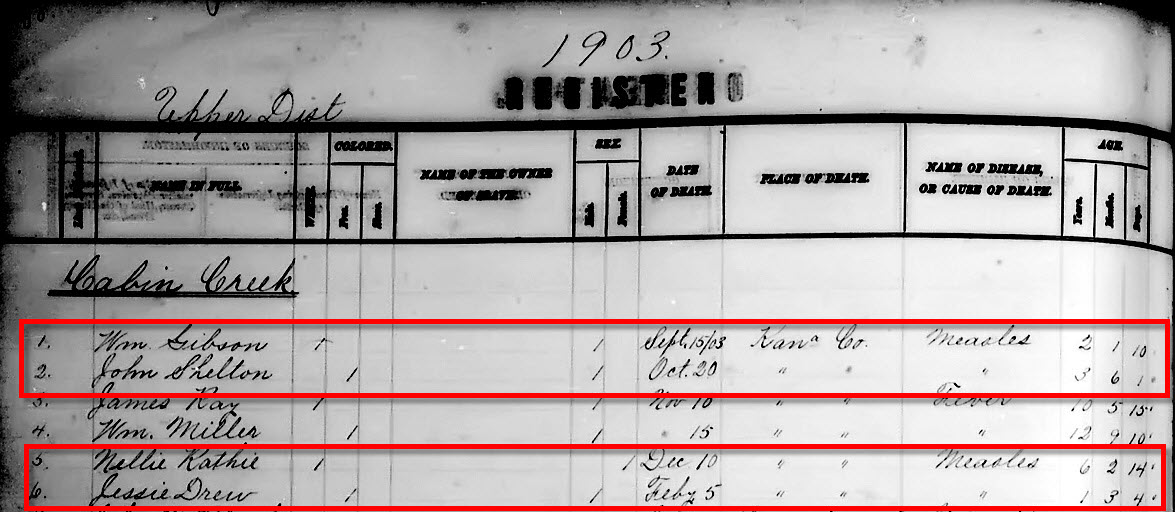 1903.
REGISTER
Upper Dist
NAME IN FULL. WHITE. COLORED. Free. Slave. NAME OF THE OWNER OF SLAVE. SEX. Male. Female. DATE OF DEATH. PLACE OF DEATH. NAME OF DISEASE, OR CAUSE OF DEATH. AGE. Years. Months. Days.
Cabin Creek
1. Wm. Gibson 1 1 Sept. 15/03 Kana Co. Measles 2 1 10
2. John Shelton 1 1 Oct. 20 " " " 3 6 1
3. James Kay 1 1 Nov 10 " " Fever 10 5 15
4. Wm. Miller 1 1 " 15 " " " 12 9 10
5. Nellie Kathie 1 1 Dec 10 " " Measles 6 2 14
6. Jessie Drew 1 1 Feby 5 " " " 1 3 4